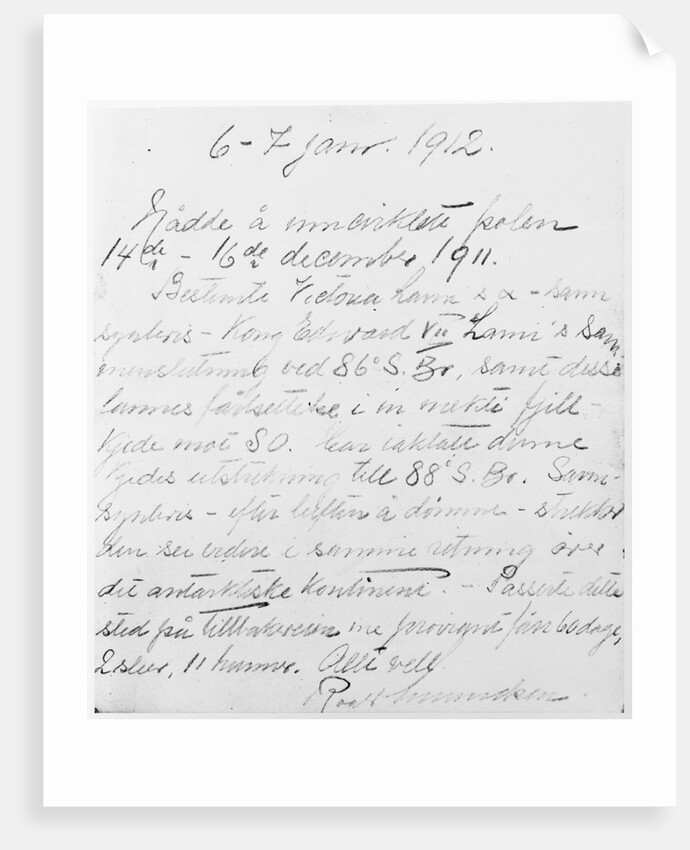 6-7 janr. 1912.
Nådde å inncirklete polen
14de - 16de december 1911.
Bestemte Victoria Lann's & - sann
synlivis - Kong Edward VII Lann's Sam
mensletning ved 86° S. Br., samt disse
lannes fårtsettelse i in mekti fjill-
kjede mot SO. Har iaktatt dinne
kjedes utstrekning till 88° S. Br. Sann-
synlivis - efter luften å dømme - strekker
den sei videre i samme retning over
dit antarktiske kontinent. - Passerte dette
sted på tillbakereisen me proviant fårr 60 dage,
2 sleer, 11 hunner. Alle vell
Roald Amundsen